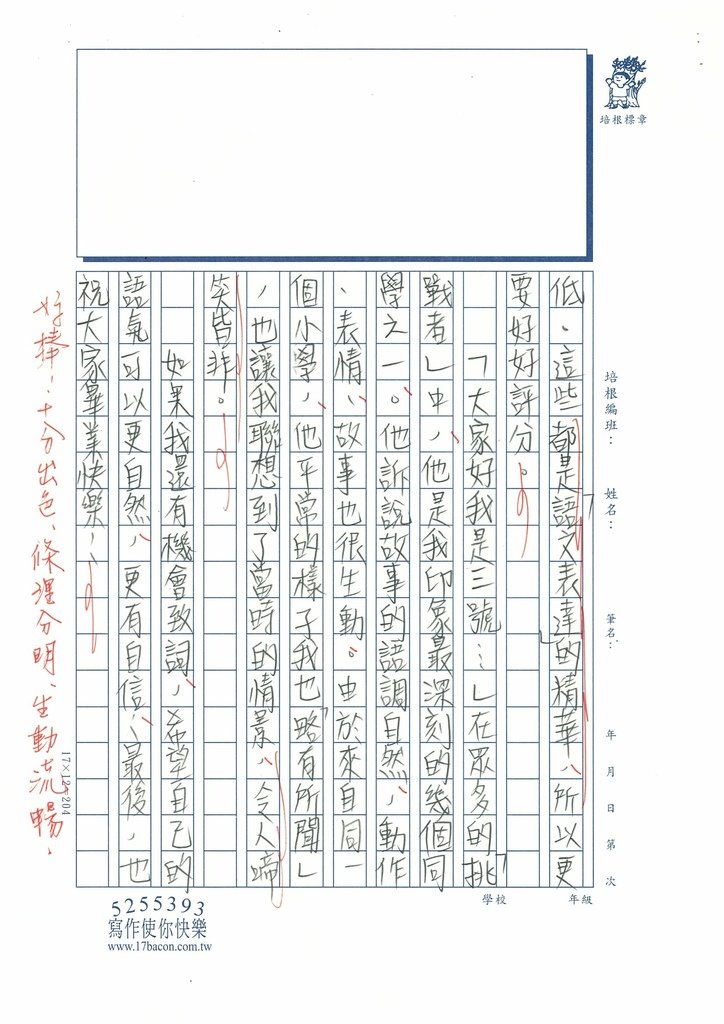 培根標章
培根編班：　姓名：　筆名：　年　月　日　第　次
學校　年級
低、這些都是「語文表達」的精華，所以更
要好好評分。
「大家好我是三號…」在眾多的「挑
戰者」中，他是我印象最深刻的幾個同
學之一。他訴說故事的語調自然，動作
、表情、故事也很生動。由於來自同一
個小學，他平常的樣子我也「略有所聞」
，也讓我聯想到了當時的情景，令人啼
笑皆非。
如果我還有機會致詞，希望自己的
語氣可以更自然，更有自信，最後，也
祝大家畢業快樂！
好棒！十分出色、條理分明、生動流暢！
17×12=204
5255393
寫作使你快樂
www.17bacon.com.tw